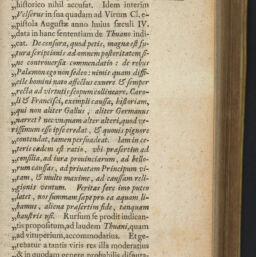 „historico nihil accusat. Idem interim
„Velserus in sua quadam ad Virum Cl. e-
„pistola Augustæ anno hujus sæculi IV.
„data in hanc sententiam de Thuano indi-
„cat. De censura, quod petis, magna est fu-
„tura scriptionis ad omnem posteritatem si-
„ne controversia commendatio: de rebus
„Palæmon ego non sedeo: nimis quam diffi-
„cile homini nato affectus exuere & semper
„recta ad virtutis scopum collineare. Caro-
„li & Francisci, exempli caussa, historiam,
„qui non aliter Gallus, aliter Germanus
„narret? nec unquam alter alteri, quod ve-
„rissimum esse ipse credat, & quovis pignore
„contendat, tamen persuadeat. Jam in ce-
„teris eadem est ratio. ubi præsertim ad
„consilia, ad jura provinciarum, ad bello-
„rum caussas, ad privatam Principum vi-
„tam, & multo maxime, ad caussam reli-
„gionis ventum. Veritas fere imo puteo
„latet, nos summam sæpe pro ea aquam li-
„bamus, aliena præsertim fide, tanquam
„haustris usi. Rursum se prodit indican-
„tis propositum, ad laudem Thuani, quam
„ad vituperium, accommodatius. Et pe-
„rebatur a tantis viris res illa moderatius
„& in quodam genere probabilis disputa-